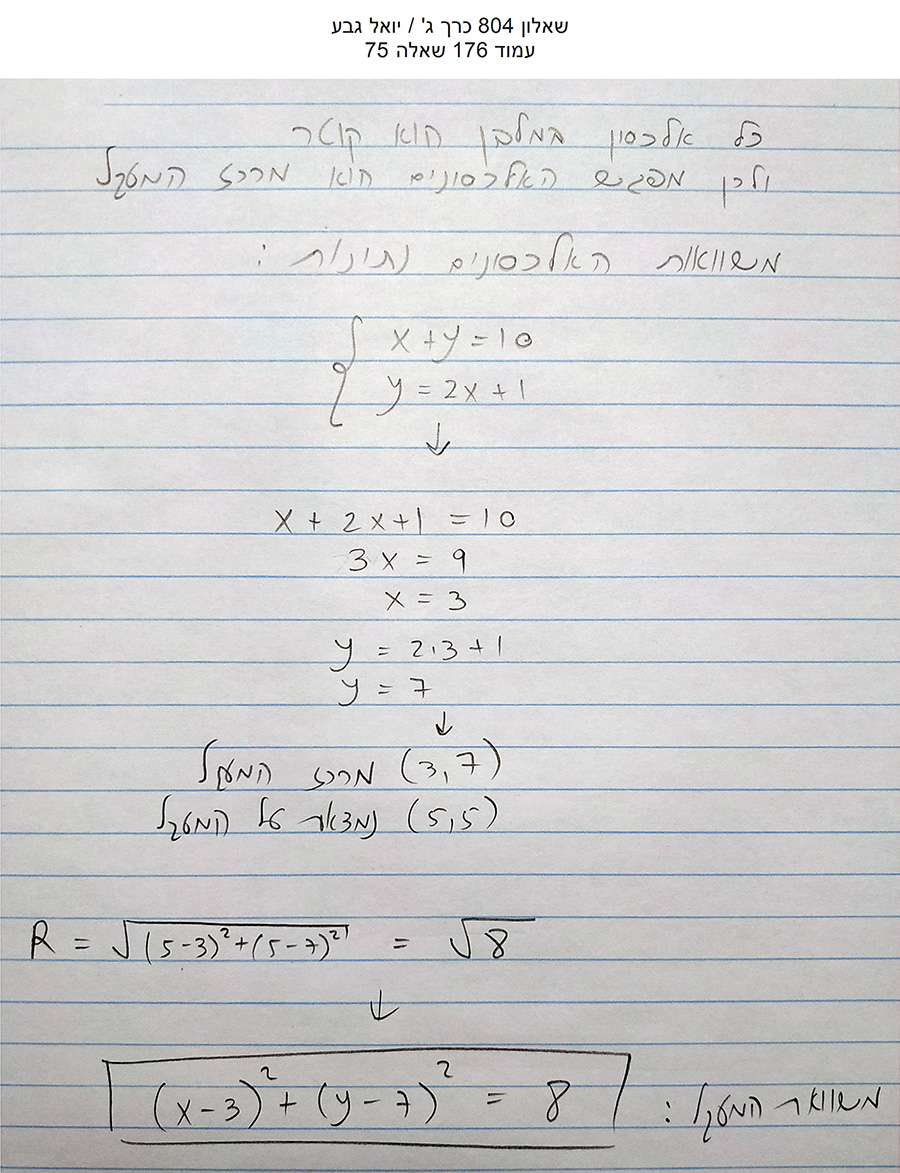 שאלון 804 כרך ג' / יואל גבע
עמוד 176 שאלה 75
כל אלכסון במלבן הוא קוטר
ולכן מפגש האלכסונים הוא מרכז המעגל
משוואות האלכסונים נתונות :
x + y = 10
y = 2x + 1
↓
x + 2x + 1 = 10
3x = 9
x = 3
y = 2·3 + 1
y = 7
↓
(3,7) מרכז המעגל
(5,5) נמצאת על המעגל
R = √((5-3)²+(5-7)²) = √8
↓
משוואת המעגל : (x-3)² + (y-7)² = 8